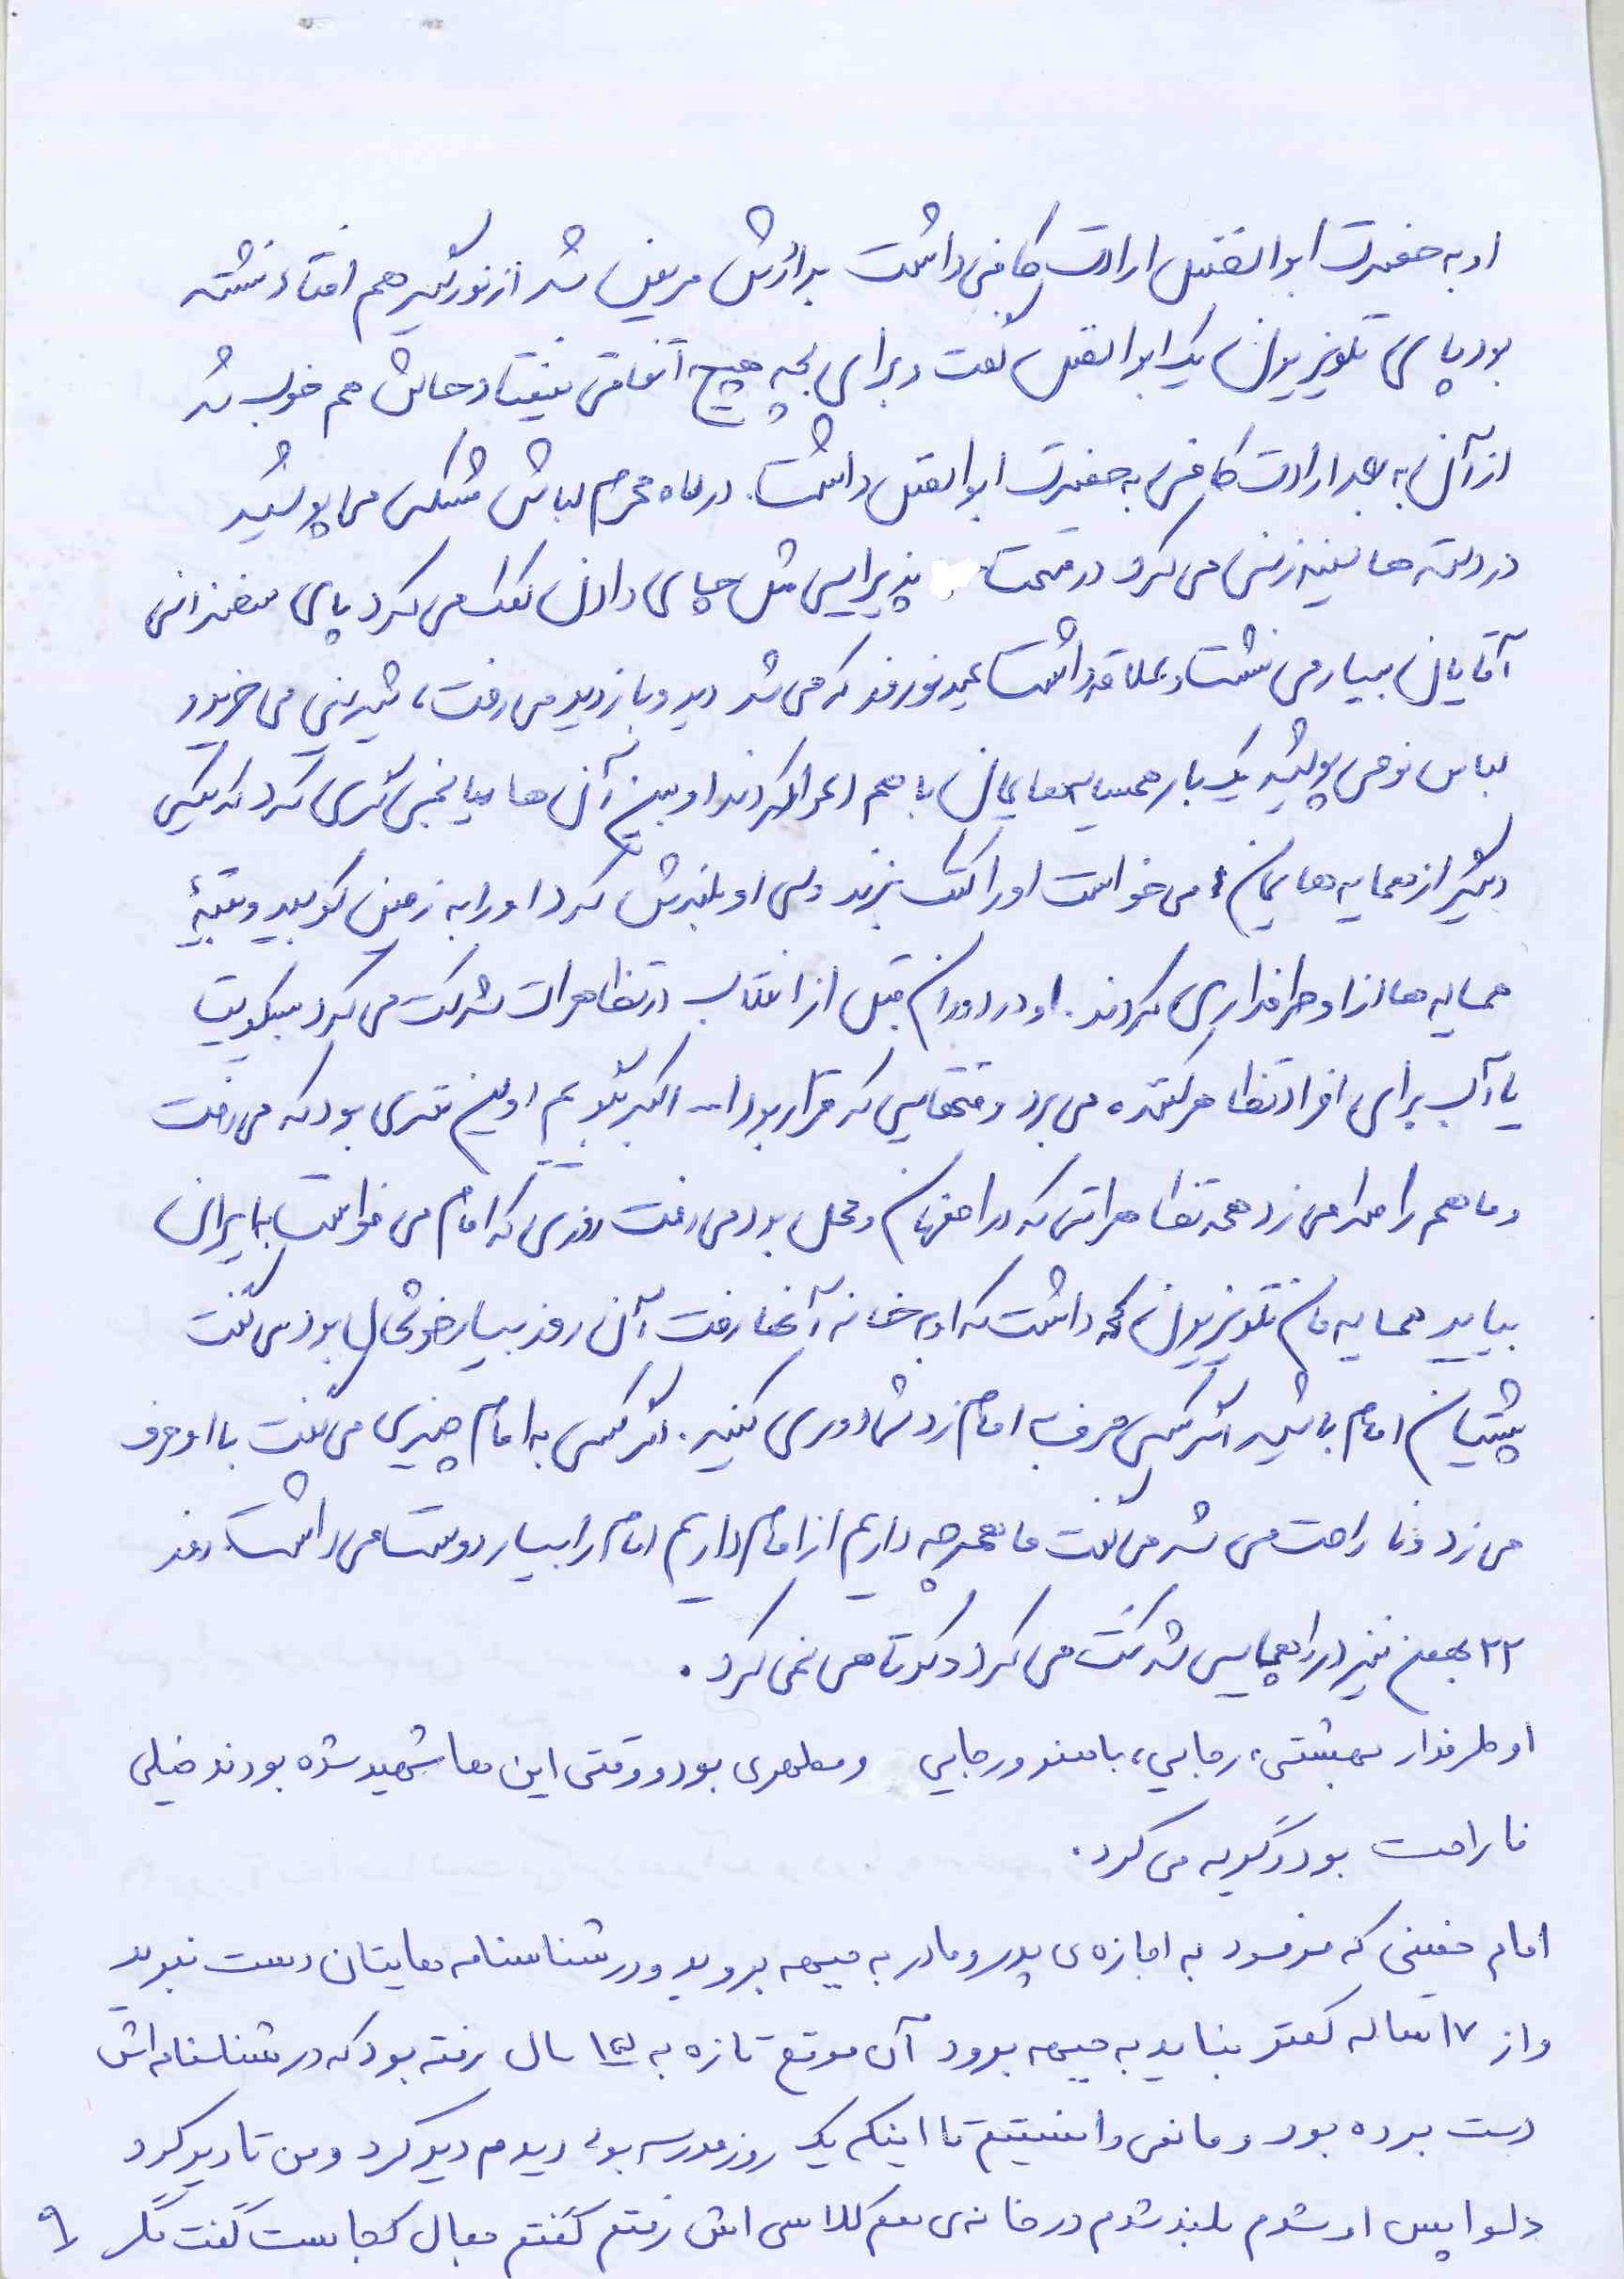 او به حضرت ابوالفضل ارادت کافی داشت برادرش مریض شد از نورگیر هم افتاد نشسته
بود پای تلویزیون یک ابوالفضل گفت و برای بچه هیچ اتفاقی نیفتاد و حالش هم خوب شد
از آن به بعد ارادت کافی به حضرت ابوالفضل داشت. در ماه محرم لباس مشکی می پوشید
در دسته ها سینه زنی می کرد در قسمت پذیرایی مثل چای دادن کمک می کرد پای سخنرانی
آقایان بسیار می نشست و علاقه داشت عید نوروز که می شد دید و بازدید می رفت، شیرینی می خرید و
لباس نو می پوشید یک بار همسایه هایمان با هم دعوا کردند او بین آن ها میانجی گری کرد که یکی
دیگر از همسایه هایمان می خواست او را کتک بزند ولی او بلندش کرد او را به زمین کوبید و بقیهٔ
همسایه ها از او طرفداری کردند. او در دوران قبل از انقلاب در تظاهرات شرکت می کرد بیسکویت
یا آب برای افراد تظاهر کننده می برد وقتهایی که قرار بود ا... اکبر بگوییم اولین نفری بود که می رفت
و ما هم را صدا می زد همه تظاهراتی که در اصفهان و محل بود می رفت روزی که امام می خواست به ایران
بیاید همسایه مان تلویزیون داشت که او به خانه آنها رفت آن روز بسیار خوشحال بود می گفت
پشتیبان امام باشید اگر کسی حرف به امام زد شما دوری کنید. اگر کسی به امام چیزی می گفت با او حرف
می زد و ناراحت می شد می گفت ما هر چه داریم از امام داریم امام را بسیار دوست می داشت روز
۲۲ بهمن نیز در راهپیمایی شرکت می کرد و کوتاهی نمی کرد.
او طرفدار بهشتی، رجایی، باهنر و رجایی و مطهری بود و وقتی این ها شهید شده بودند خیلی
ناراحت بود و گریه می کرد.
امام خمینی که فرمود به اجازه ی پدر و مادر به جبهه بروید و در شناسنامه هایتان دست نبرید
و از ۱۷ ساله کمتر نباید به جبهه برود آن موقع تازه به ۱۵ سال رفته بود که در شناسنامه اش
دست برده بود و ما نمی دانستیم تا اینکه یک روز مدرسه بود دیدم دیر کرد و من تا دیر کرد
دلواپس او شدم بلند شدم در خانه ی هم کلاسی اش رفتم گفتم کجاست گفت مگر
۹